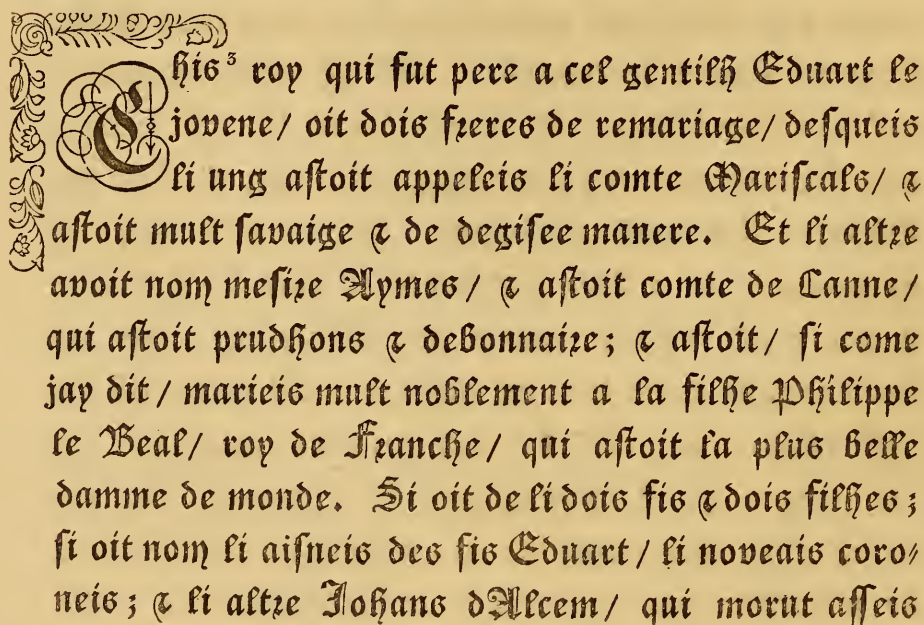 Chis³ roy qui fut pere a cel gentilh Eduart le
jovene/ oit dois freres de remariage/ desqueis
li ung astoit appeleis li comte Mariscals/ &
astoit mult savaige & de degisee manere. Et li altre
avoit nom mesire Aymes/ & astoit comte de Canne/
qui astoit prudhons & debonnaire; & astoit/ si come
jay dit/ marieis mult noblement a la filhe Philippe
le Beal/ roy de Franche/ qui astoit la plus belle
damme de monde. Si oit de li dois fis & dois filhes;
si oit nom li aisneis des fis Eduart/ li noveais coro/
neis; & li altre Johans dAlcem/ qui morut asseis